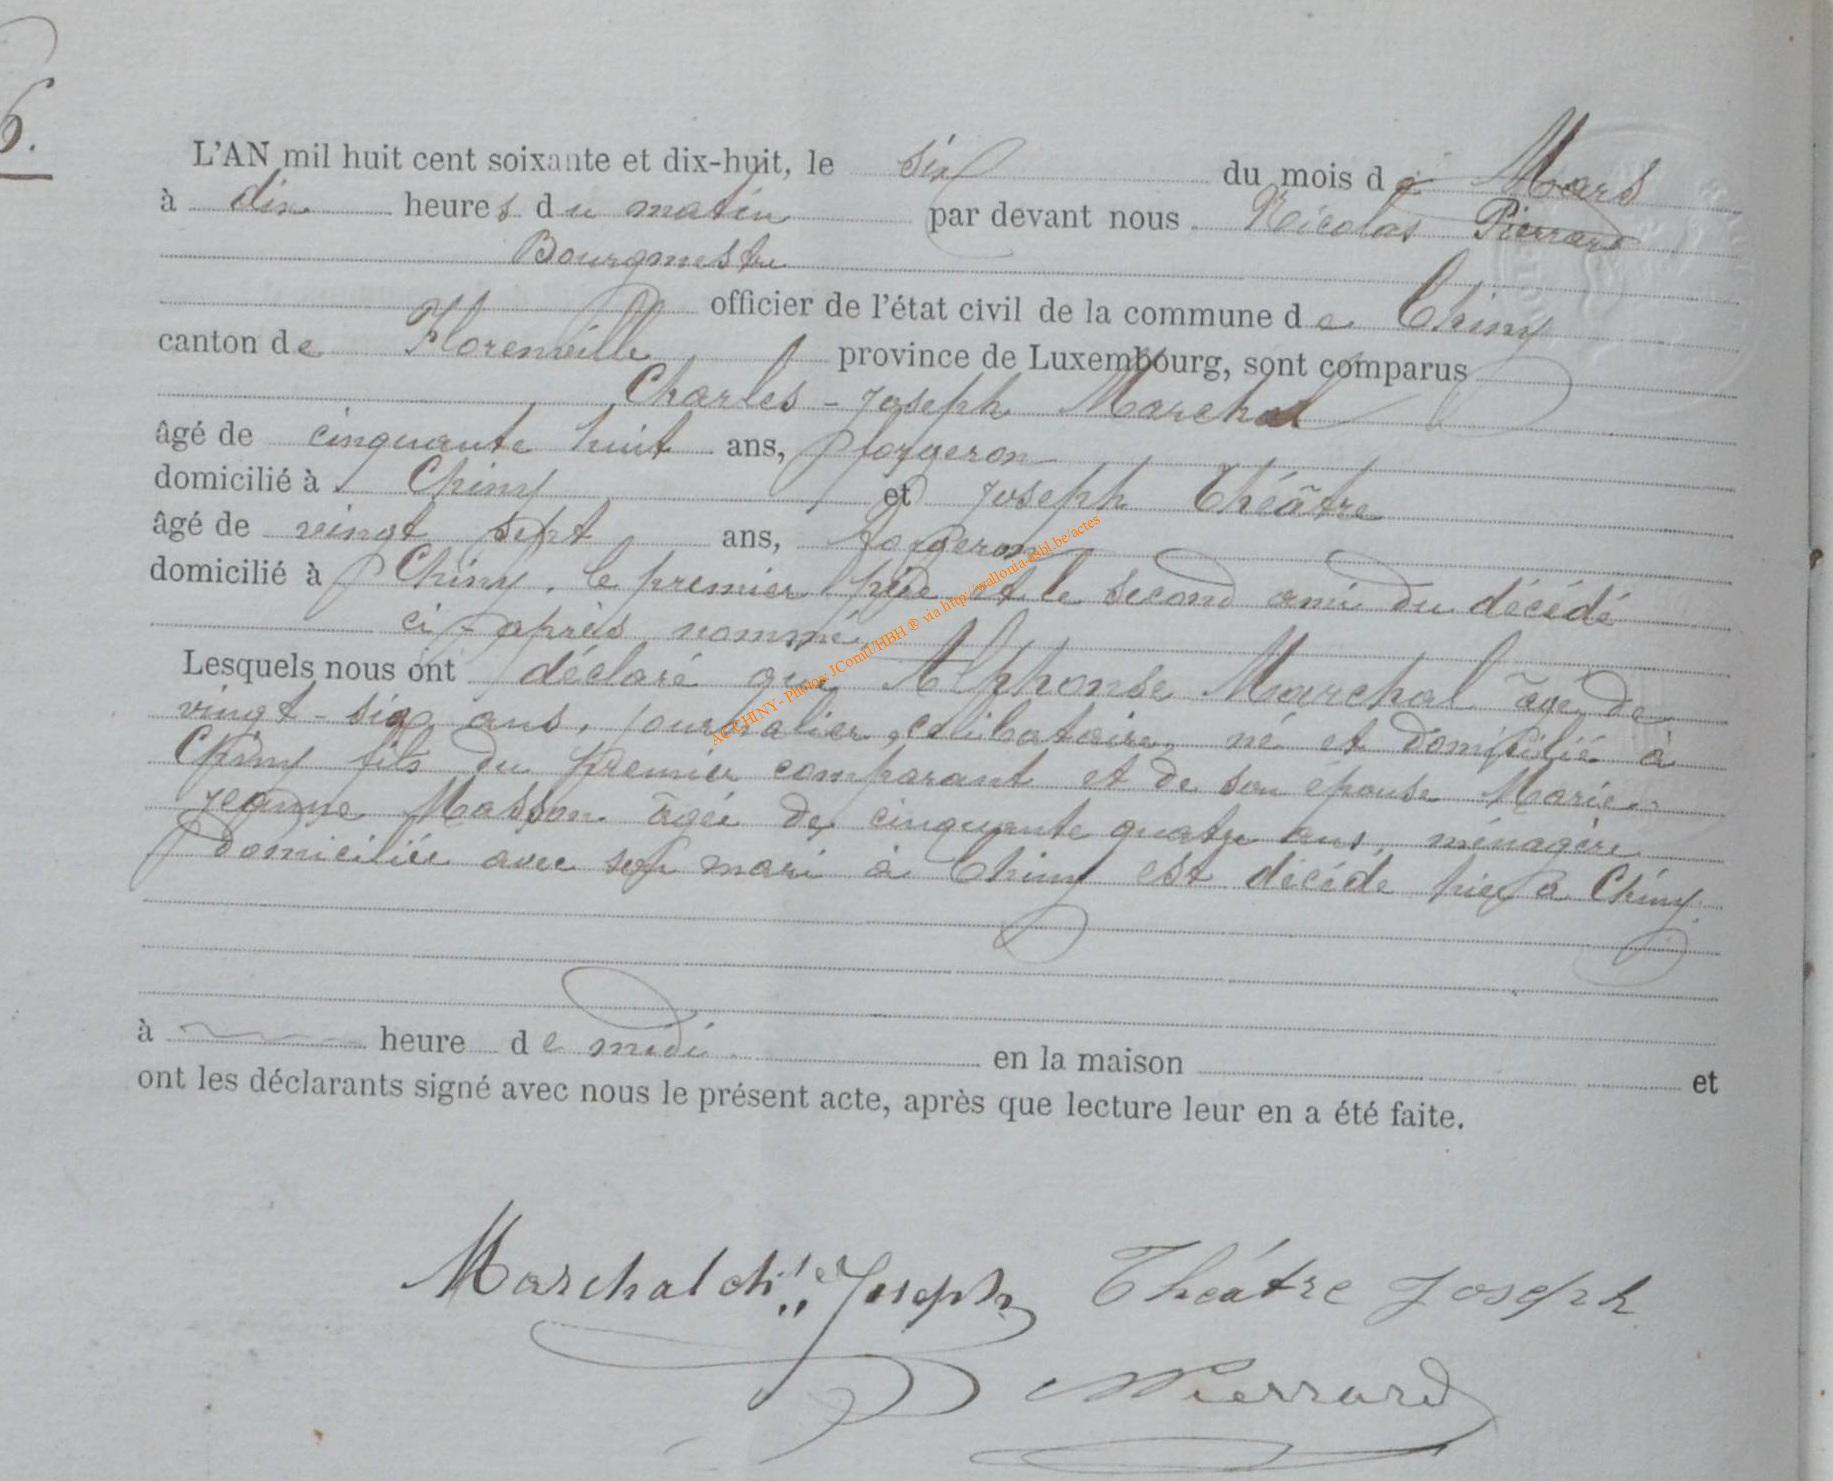 6.
L'AN mil huit cent soixante et dix-huit, le six du mois de Mars
à dix heures du matin par devant nous Nicolas Pierrard
Bourgmestre
officier de l'état civil de la commune de Chiny
canton de Florenville province de Luxembourg, sont comparus
Charles-Joseph Marchal
âgé de cinquante huit ans, forgeron
domicilié à Chiny et Joseph Théâtre
âgé de vingt sept ans, forgeron
domicilié à Chiny, le premier père et le second ami du décédé
ci-après nommé
Lesquels nous ont déclaré que Alphonse Marchal âgé de
vingt-six ans, journalier, célibataire, né et domicilié à
Chiny fils du premier comparant et de son épouse Marie
Jeanne Masson âgée de cinquante quatre ans, ménagère
domiciliée avec son mari à Chiny est décédé hier à Chiny
à heure de midi en la maison et
ont les déclarants signé avec nous le présent acte, après que lecture leur en a été faite.
Marchal ch.le Joseph Théâtre Joseph
NPierrard
AC CHINY - Photos JComil/HBH ® via http://wallonia-asbl.be/actes